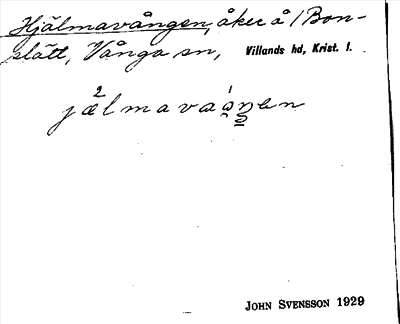 Hjälmavången, åker å 1 Bon-
slätt, Vånga sn, Villands hd, Krist. l.
jælmavaåŋen
JOHN SVENSSON 1929